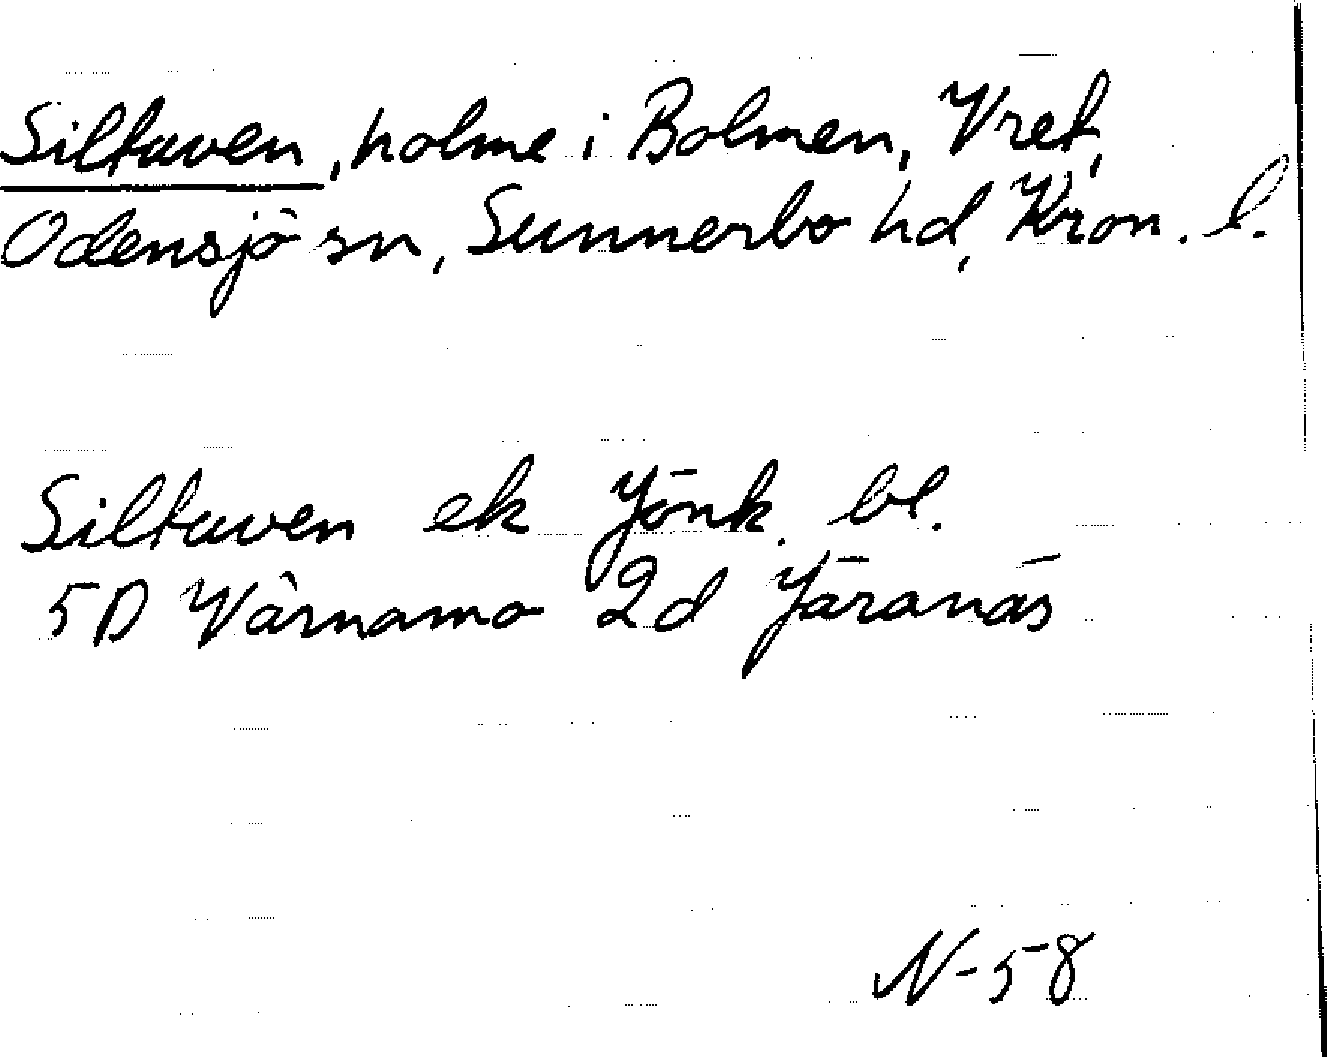 Siltaven, holme i Bolmen, Vret,
Odensjö sn, Sunnerbo hd, Kron. l.
Siltaven ek Jönk. bl.
5D Värnamo 2d Järanäs
N-58